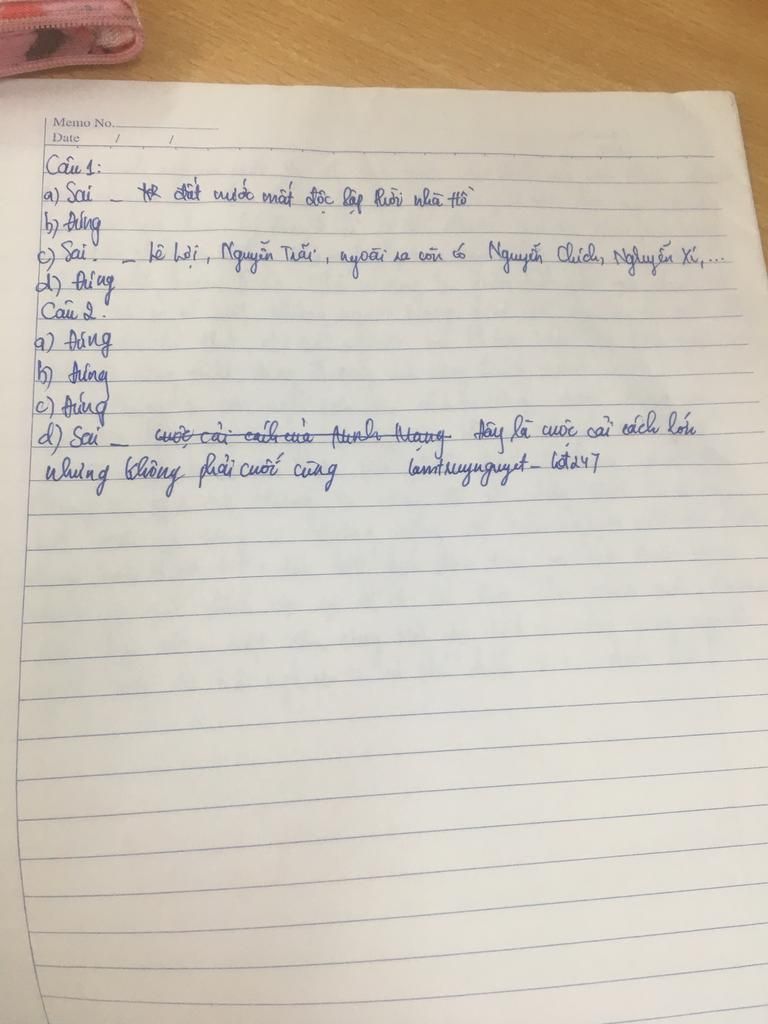 Memo No.
Date / /
Câu 1:
a) Sai - đất nước mất độc lập thời nhà Hồ
b) Đúng
c) Sai. - Lê Lợi, Nguyễn Trãi, ngoài ra còn có Nguyễn Chích, Nguyễn Xí,...
d) Đúng
Câu 2.
a) Đúng
b) Đúng
c) Đúng
d) Sai - cuộc cải cách của Minh Mạng đây là cuộc cải cách lớn
nhưng không phải cuối cùng